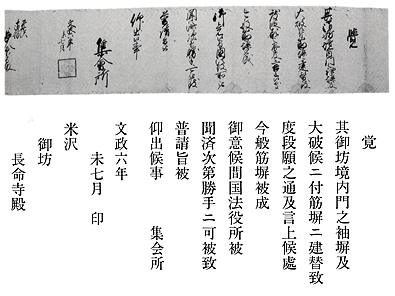 覚
其御坊境内門之袖塀及
大破候ニ付筋塀ニ建替致
度段願之通及言上候處
今般筋塀被成
御意候間国法役所被
聞済次第勝手ニ可被致
普請旨被
仰出候事　集会所
文政六年
未七月　印
米沢
御坊
長命寺殿